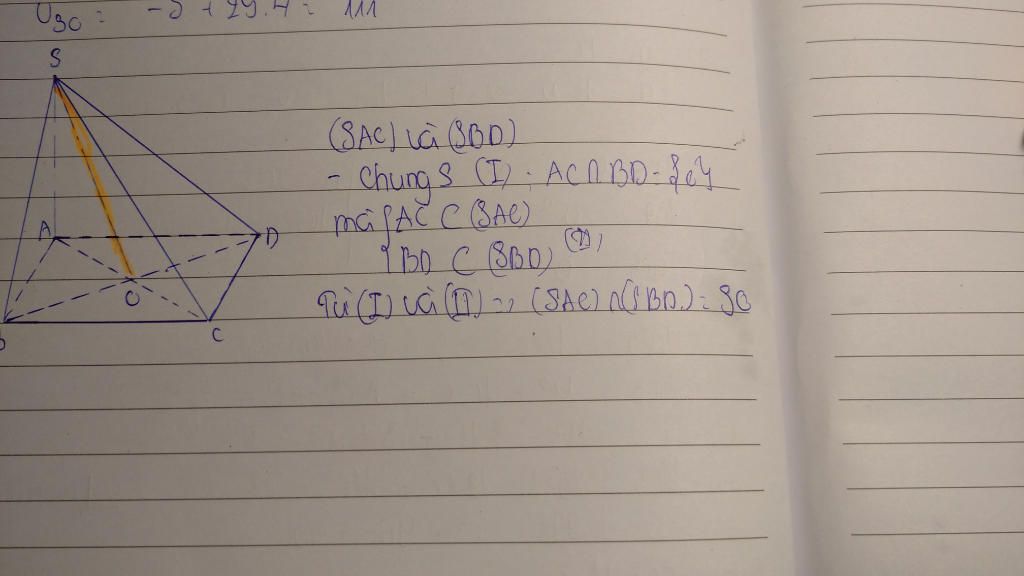 U30 = -5 + 29.4 = 111
S
A
D
O
B
C
(SAC) và (SBD)
- Chung S (I) . AC∩BD={O}
mà { AC ⊂ (SAC)
{ BD ⊂ (SBD) (II)
Từ (I) và (II) => (SAC)∩(SBD) = SO